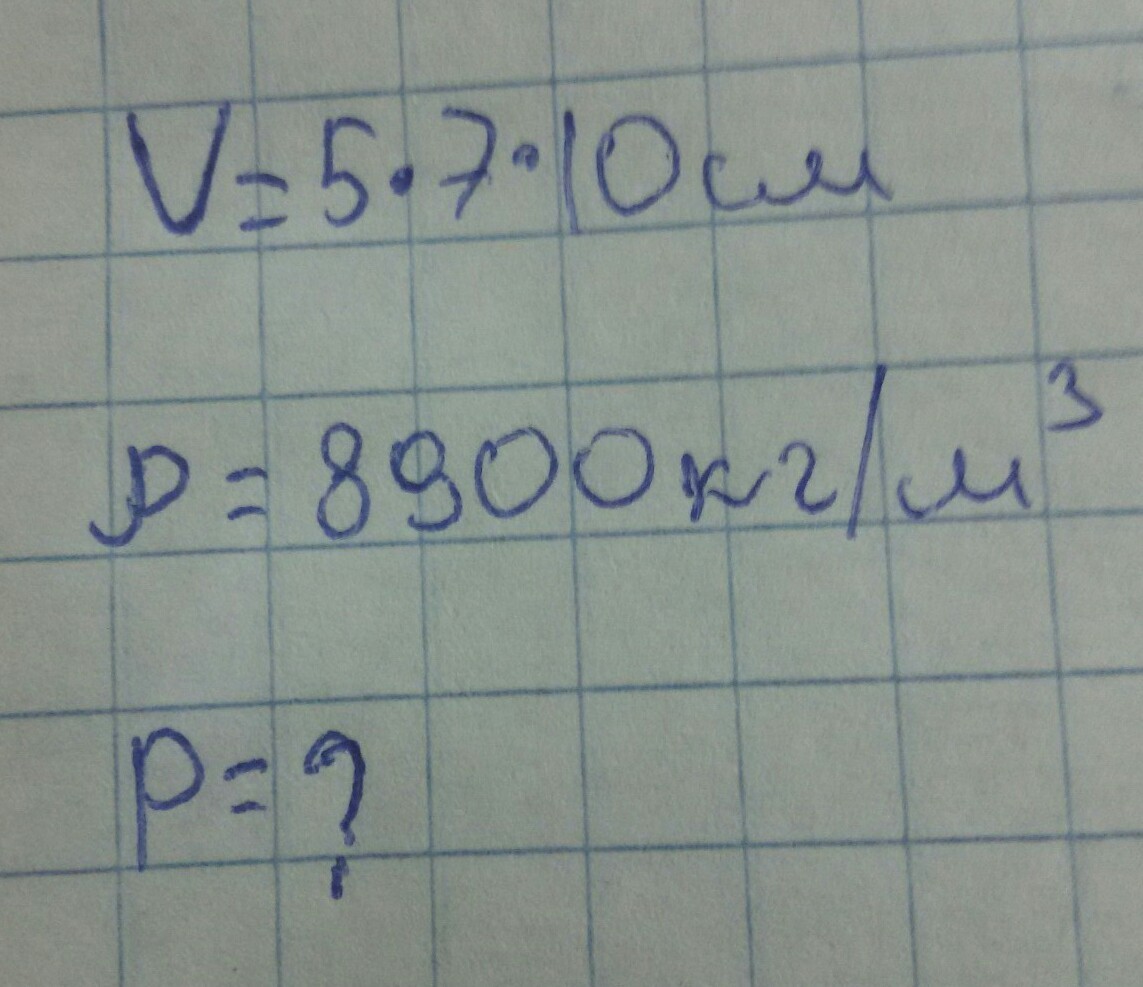 V=5·7·10см
ρ=8900кг/м³
P=?